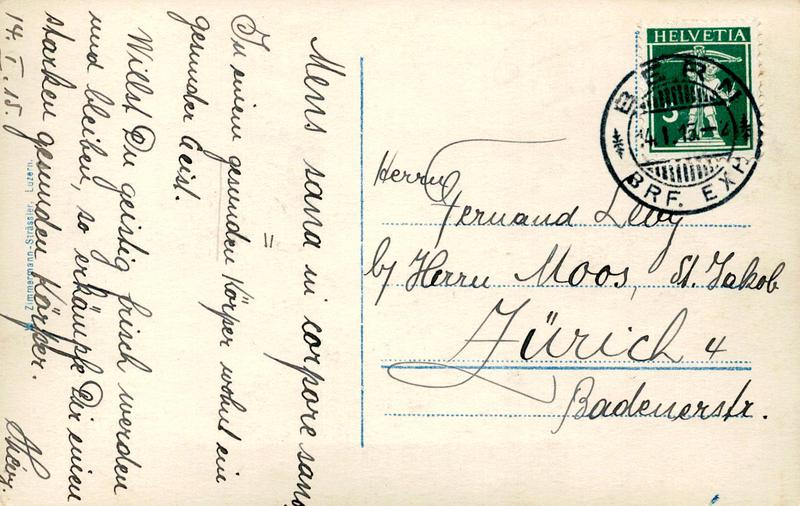 Mens sana in corpore sano
=
In einem gesunden Körper wohnt ein
gesunder Geist.
Willst Du geistig frisch werden
und bleiben, so erkämpfe Dir einen
starken gesunden Körper.
14. I. 15.
Zimmermann-Strässler, Luzern.
HELVETIA
5
BERN
14. I. 15
BRF. EXP.
Herrn
Fernand Levy
b/ Herrn Moos, St. Jakob
Zürich 4
Badenerstr.